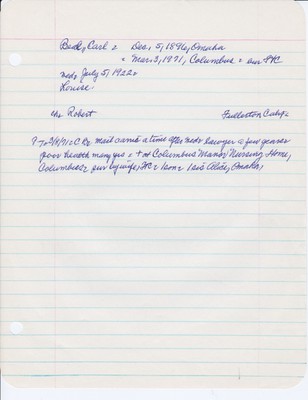 Beck, Carl = Dec, 5, 1896, Omaha
= Mar, 3, 1971, Columbus =
md, July 5, 1922 =
Louise
ch: Robert Fullerton Calif =
mail carrier a time after md = lawyer = few years
poor health many yrs = + at Columbus Manor Nursing Home,
Columbus = sur by wife, = 1 son = 1 sis Alice, Omaha,